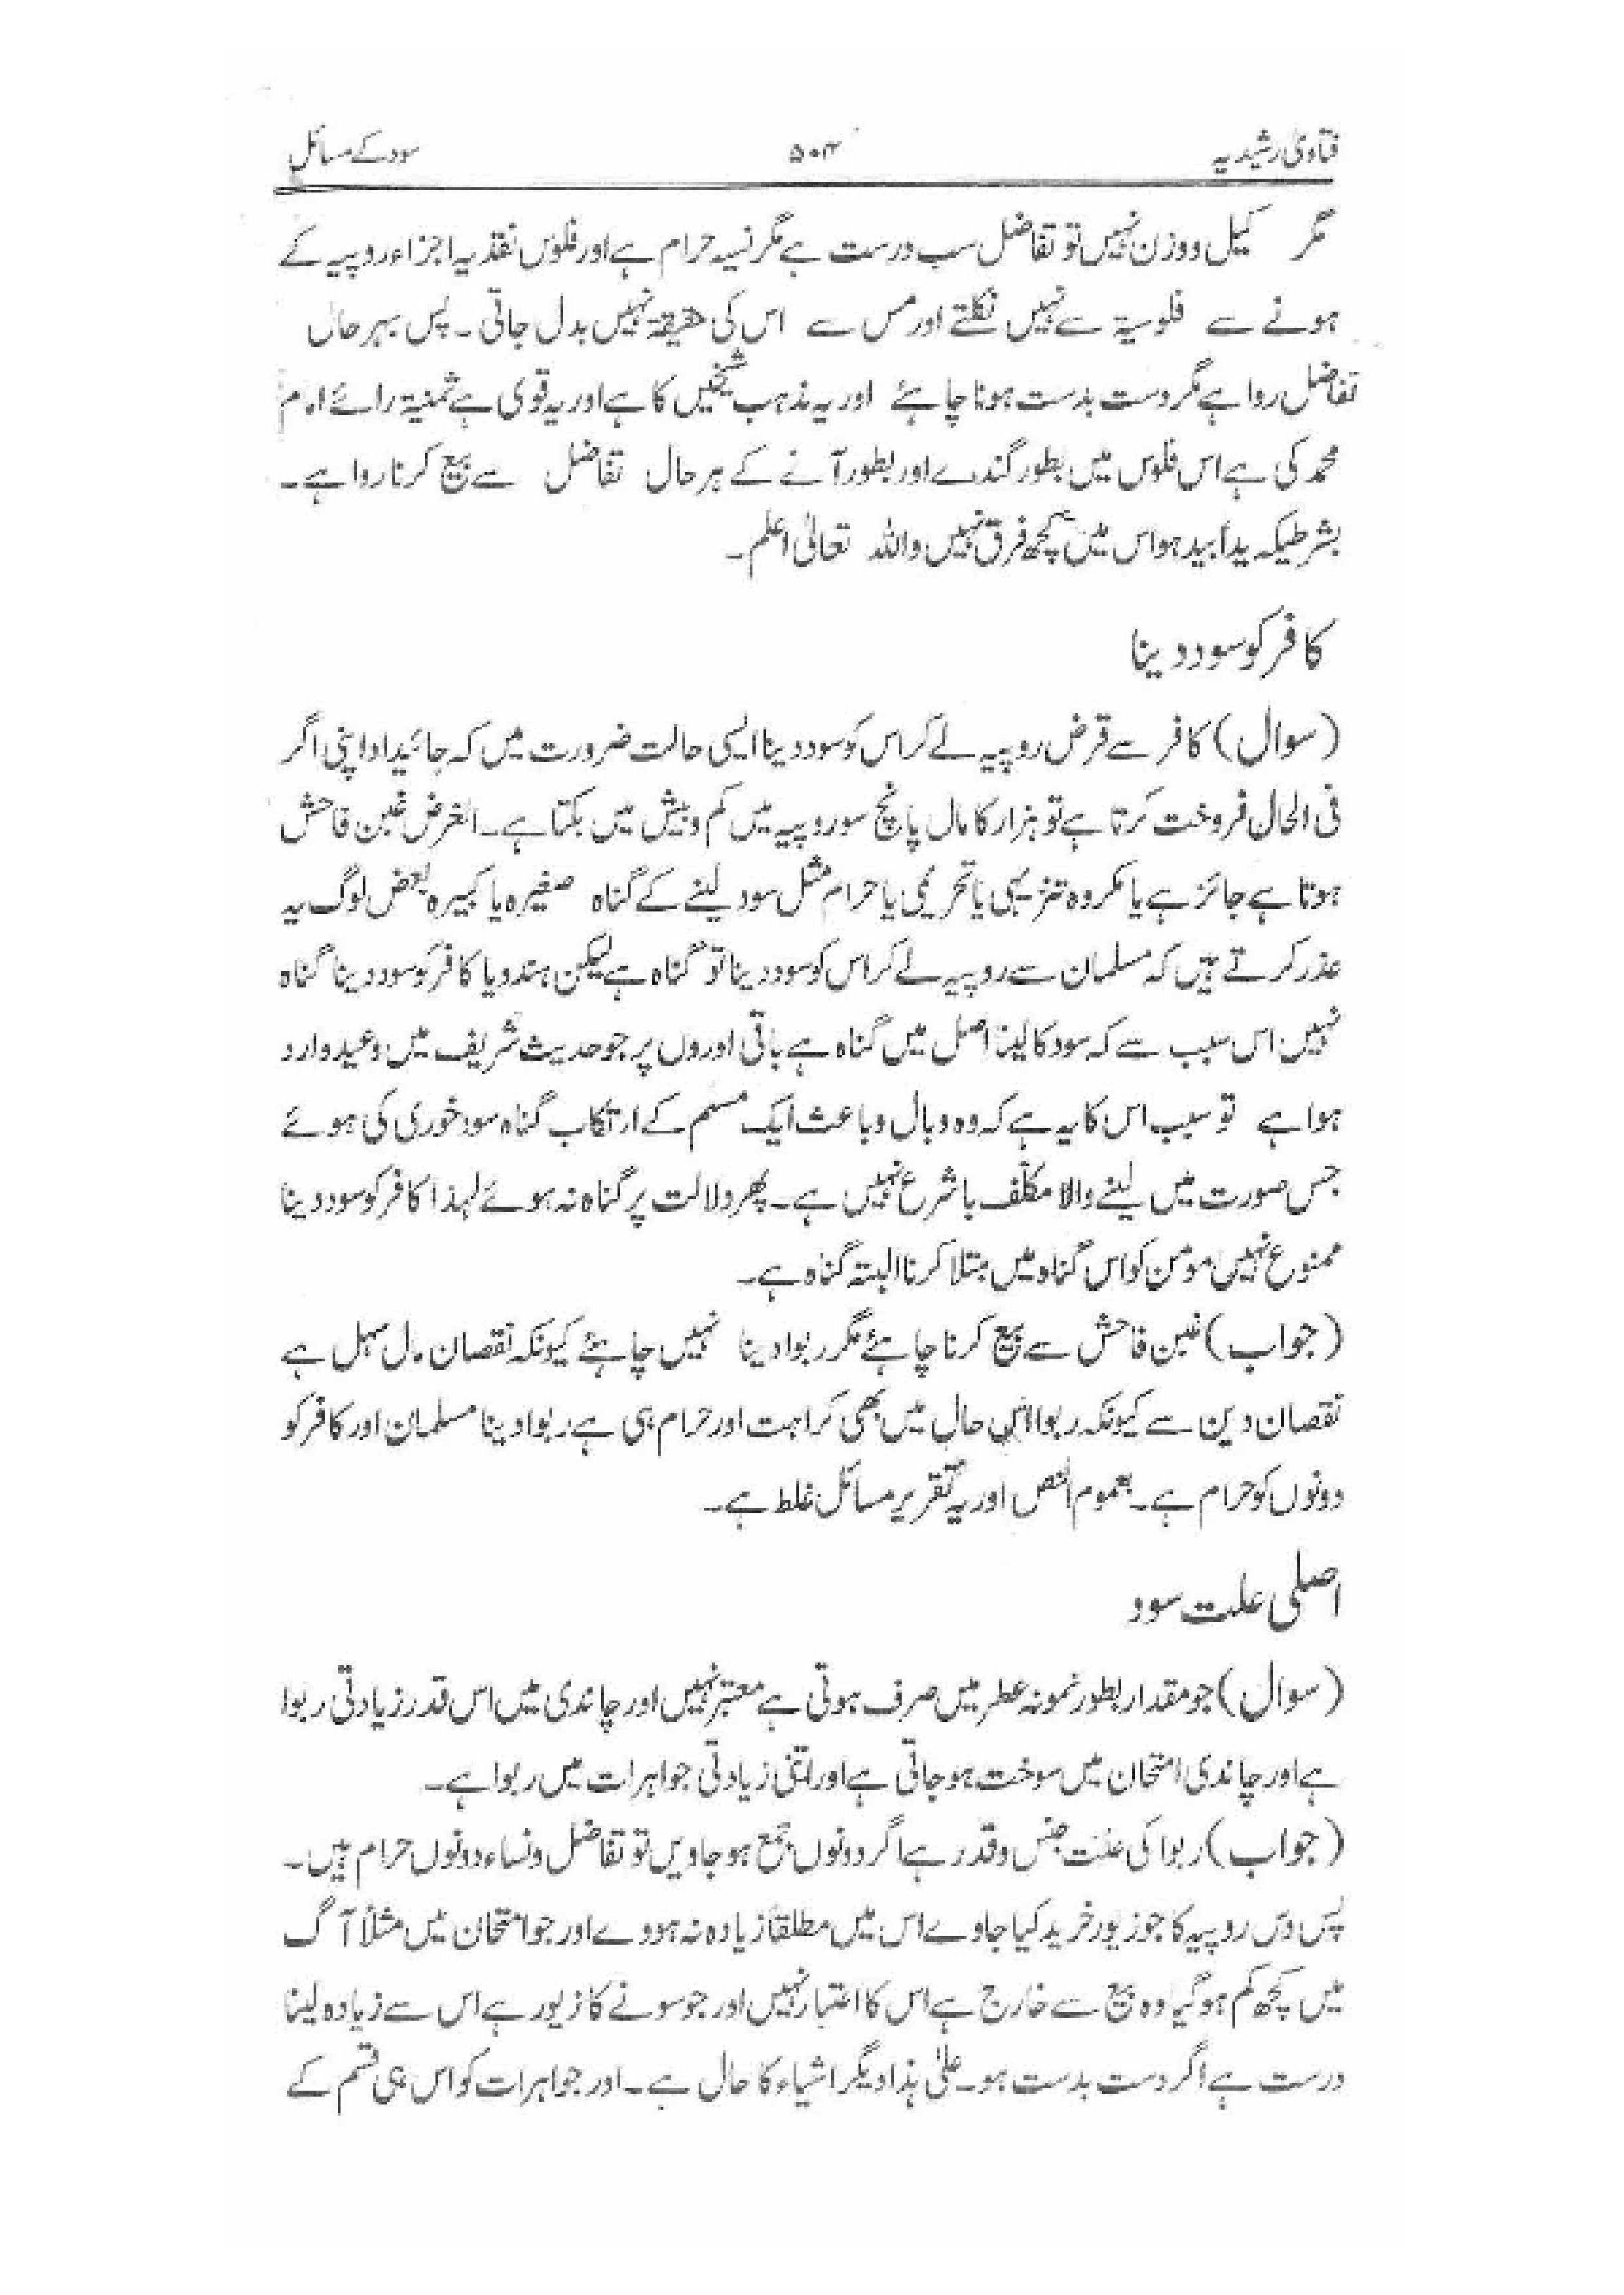 فتاویٰ رشیدیہ ۵۰۴ سود کے مسائل
مگر کیل و وزن نہیں تو تفاضل سب درست ہے مگر نسیہ حرام ہے اور فلوس نقدیہ اجزاء روپیہ کے
ہونے سے فلوسیۃ سے نہیں نکلتے اور مس سے اس کی حقیقۃ نہیں بدل جاتی۔ پس بہر حال
تفاضل روا ہے مگر دست بدست ہونا چاہئے اور یہ مذہب شیخین کا ہے اور یہ قوی ہے ثمنیۃ رائے امام
محمد کی ہے اس فلوس میں بطور گندے اور بطور آنے کے ہر حال تفاضل سے بیع کرنا روا ہے۔
بشرطیکہ یداً بید ہو اس میں کچھ فرق نہیں واللہ تعالیٰ اعلم۔
کافر کو سود دینا
(سوال) کافر سے قرض روپیہ لے کر اس کو سود دینا ایسی حالت ضرورت میں کہ جائیداد اپنی اگر
فی الحال فروخت کرتا ہے تو ہزار کا مال پانچ سو روپیہ میں کم و بیش میں بکتا ہے۔ الغرض غبن فاحش
ہوتا ہے جائز ہے یا مکروہ تنزیہی یا تحریمی یا حرام مثل سود لینے کے گناہ صغیرہ یا کبیرہ بعض لوگ یہ
عذر کرتے ہیں کہ مسلمان سے روپیہ لے کر اس کو سود دینا تو گناہ ہے لیکن ہندو یا کافر کو سود دینا گناہ
نہیں اس سبب سے کہ سود کا لینا اصل میں گناہ ہے باقی اوروں پر جو حدیث شریف میں وعید وارد
ہوا ہے تو سبب اس کا یہ ہے کہ وہ وبال و باعث ایک مسلم کے ارتکاب گناہ سود خوری کی ہوئے
جس صورت میں لینے والا مکلّف با شرع نہیں ہے۔ پھر دلالت پر گناہ نہ ہوئے لہذا کافر کو سود دینا
ممنوع نہیں مومن کو اس گناہ میں مبتلا کرنا البتہ گناہ ہے۔
(جواب) غبن فاحش سے بیع کرنا چاہئے مگر ربوا دینا نہیں چاہئے کیونکہ نقصان مال سہل ہے
نقصان دین سے کیونکہ ربوا اس حال میں بھی کراہت اور حرام ہی ہے ربوا دینا مسلمان اور کافر کو
دونوں کو حرام ہے۔ بعموم النص اور یہ تقریر مسائل غلط ہے۔
اصلی علت سود
(سوال) جو مقدار بطور نمونہ عطر میں صرف ہوتی ہے معتبر نہیں اور چاندی میں اس قدر زیادتی ربوا
ہے اور چاندی امتحان میں سوخت ہو جاتی ہے اور اتنی زیادتی جواہرات میں ربوا ہے۔
(جواب) ربوا کی علت جنس و قدر ہے اگر دونوں جمع ہو جاویں تو تفاضل و نساء دونوں حرام ہیں۔
پس دس روپیہ کا جو زیور خرید کیا جاوے اس میں مطلقاً زیادہ نہ ہووے اور جو امتحان میں مثلاً آگ
میں کچھ کم ہو گیا وہ بیع سے خارج ہے اس کا اعتبار نہیں اور جو سونے کا زیور ہے اس سے زیادہ لینا
درست ہے اگر دست بدست ہو۔ علیٰ ہذا دیگر اشیاء کا حال ہے۔ اور جواہرات کو اس ہی قسم کے